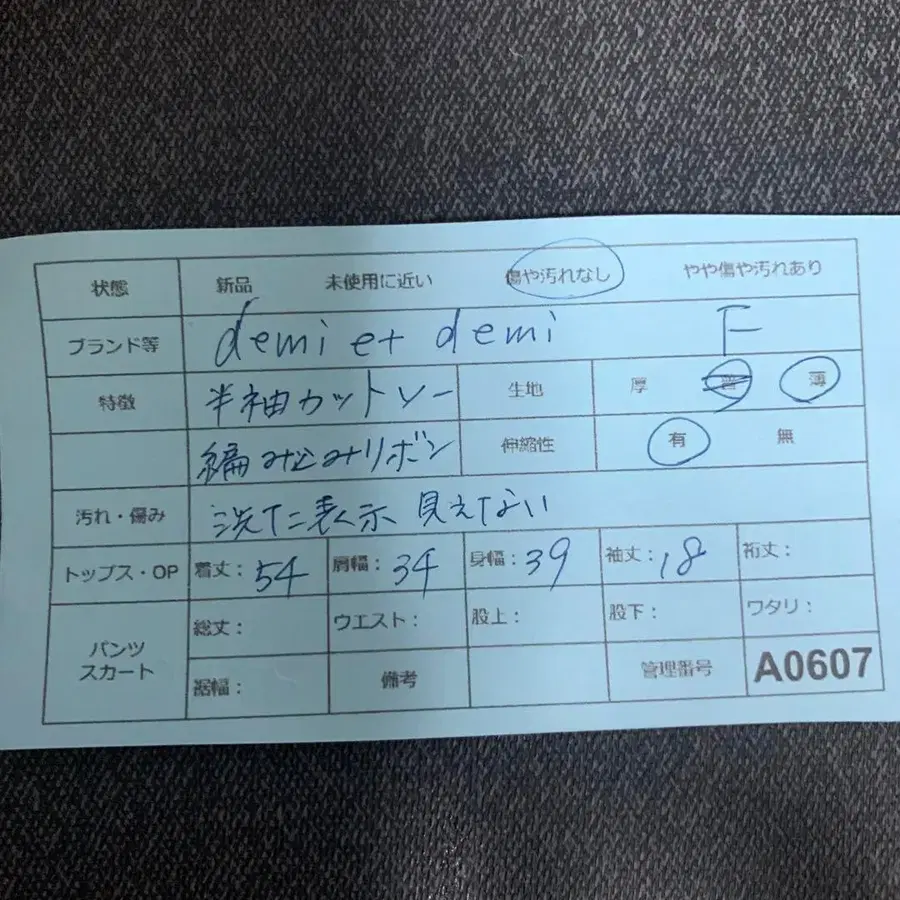 状態 新品 未使用に近い 傷や汚れなし やや傷や汚れあり
ブランド等 demi et demi F
特徴 半袖カットソー 生地 厚 普 薄
編み込みリボン 伸縮性 有 無
汚れ・傷み 洗たく表示 見えてない
トップス・OP 着丈：54 肩幅：34 身幅：39 袖丈：18 裄丈：
パンツ スカート 総丈： ウエスト： 股上： 股下： ワタリ：
裾幅： 備考 管理番号 A0607